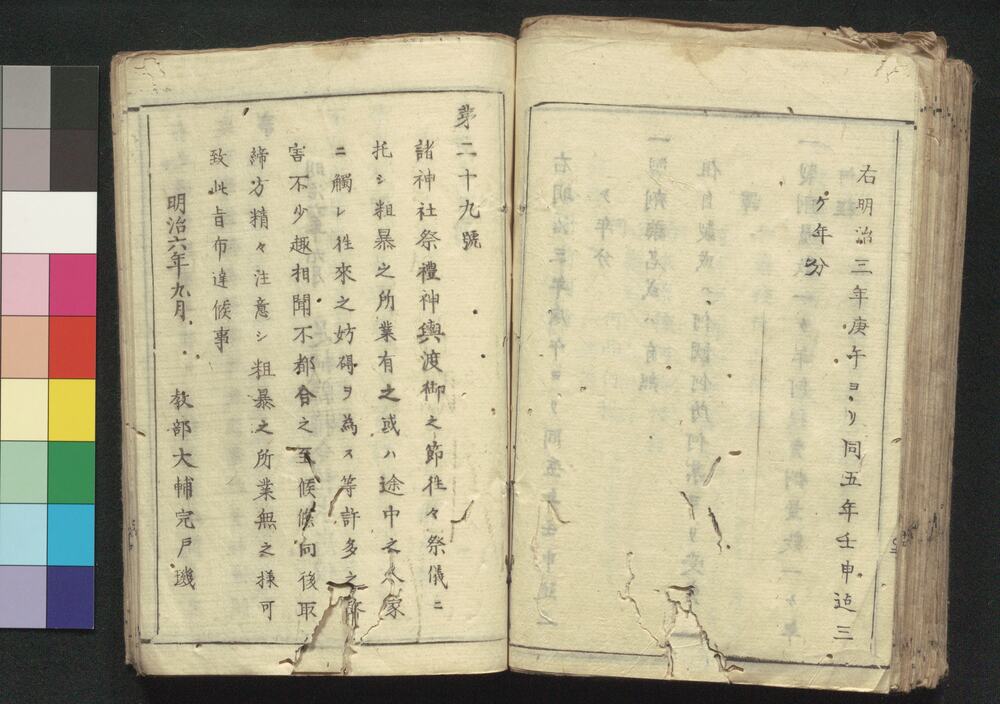 右明治三年庚午ヨリ同五年壬申迠三
ケ年分
第二十九號
諸神社祭禮神輿渡御之節徃々祭儀ニ
托シ粗暴之所業有之或ハ途中之人家
ニ觸レ徃來之妨碍ヲ為ス等許多之弊
害不少趣相聞不都合之至候條向後取
締方精々注意シ粗暴之所業無之様可
致此旨布達候事
明治六年九月 教部大輔宍戸璣